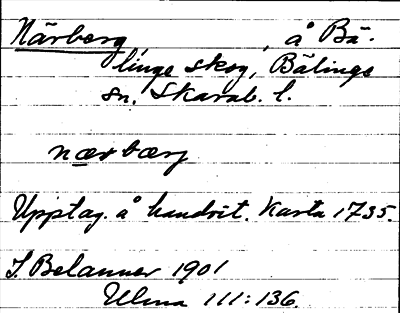 Närberg, å Bä-
linge skog, Bälinge
sn, Skarab. l.
nærbærj
Upptag. å handrit. Karta 1735.
J. Belanner 1901
Ulma 111:136.